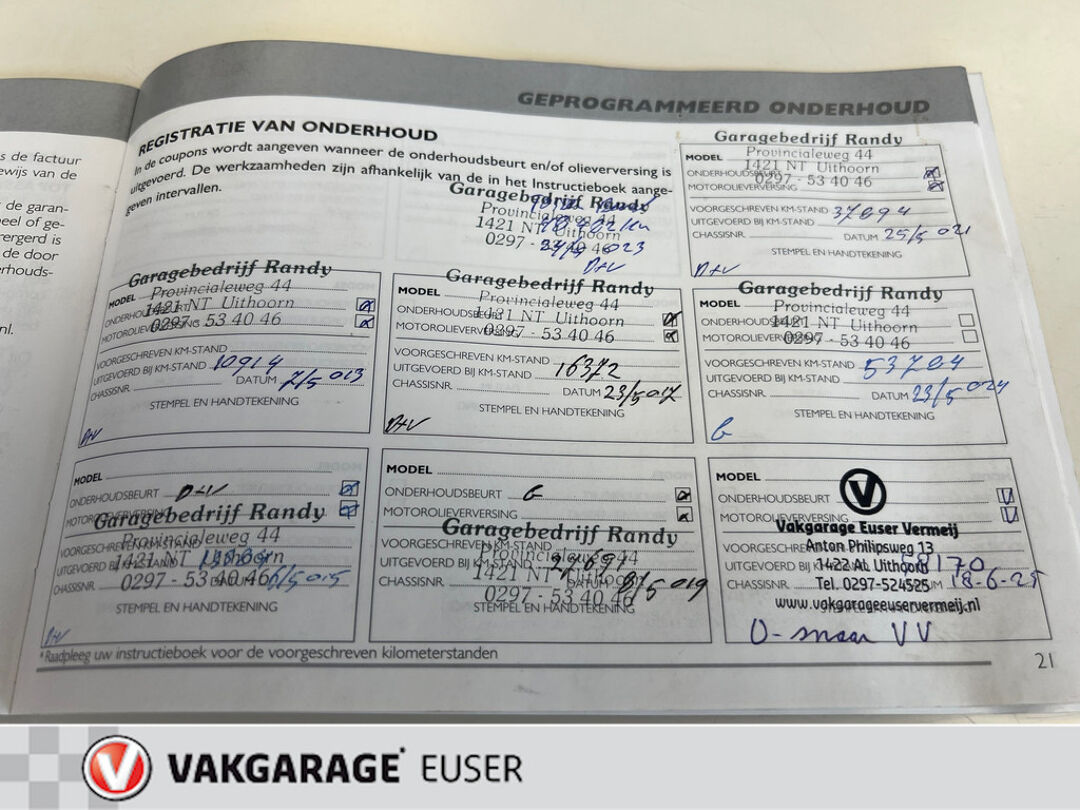 s de factuur
ewijs van de
de garan-
eel of ge-
rergerd is
de door
erhouds-
nl.
GEPROGRAMMEERD ONDERHOUD
REGISTRATIE VAN ONDERHOUD
In de coupons wordt aangeven wanneer de onderhoudsbeurt en/of olieverversing is
uitgevoerd. De werkzaamheden zijn afhankelijk van de in het Instructieboek aange-
geven intervallen.
Garagebedrijf Randy
Provincialeweg 44
1421 NT Uithoorn
0297 - 53 40 46
023
D+V
Garagebedrijf Randy
MODEL
Provincialeweg 44
1421 NT Uithoorn
ONDERHOUDSBEURT
0297 - 53 40 46
MOTOROLIEVERVERSING
VOORGESCHREVEN KM-STAND
UITGEVOERD BIJ KM-STAND 37694
CHASSISNR. DATUM 25/5 021
STEMPEL EN HANDTEKENING
D+V
Garagebedrijf Randy
MODEL
Provincialeweg 44
1421 NT Uithoorn
ONDERHOUDSBEURT
MOTOROLIEVERVERSING
0297 - 53 40 46
VOORGESCHREVEN KM-STAND
UITGEVOERD BIJ KM-STAND 10914
CHASSISNR. DATUM 7/5 013
STEMPEL EN HANDTEKENING
D+V
Garagebedrijf Randy
MODEL
Provincialeweg 44
1421 NT Uithoorn
ONDERHOUDSBEURT
MOTOROLIEVERVERSING
0297 - 53 40 46
VOORGESCHREVEN KM-STAND
UITGEVOERD BIJ KM-STAND 16372
CHASSISNR. DATUM 23/5 017
STEMPEL EN HANDTEKENING
D+V
Garagebedrijf Randy
MODEL
Provincialeweg 44
1421 NT Uithoorn
ONDERHOUDSBEURT
MOTOROLIEVERVERSING
0297 - 53 40 46
VOORGESCHREVEN KM-STAND
UITGEVOERD BIJ KM-STAND 53704
CHASSISNR. DATUM 23/5 024
STEMPEL EN HANDTEKENING
MODEL
ONDERHOUDSBEURT D+V
MOTOROLIEVERVERSING
Garagebedrijf Randy
Provincialeweg 44
VOORGESCHREVEN KM-STAND
1421 NT Uithoorn
UITGEVOERD BIJ KM-STAND
0297 - 53 40 46
CHASSISNR. 6/5 015
STEMPEL EN HANDTEKENING
D+V
MODEL
ONDERHOUDSBEURT G
MOTOROLIEVERVERSING
Garagebedrijf Randy
VOORGESCHREVEN KM-STAND
Provincialeweg 44
UITGEVOERD BIJ KM-STAND
1421 NT Uithoorn
CHASSISNR. DATUM 8/5 019
0297 - 53 40 46
STEMPEL EN HANDTEKENING
MODEL
V
ONDERHOUDSBEURT
MOTOROLIEVERVERSING
Vakgarage Euser Vermeij
VOORGESCHREVEN
Anton Philipsweg 13
UITGEVOERD BIJ KM-STAND
1422 AL Uithoorn
CHASSISNR. DATUM 18-6-25
Tel. 0297-524525
www.vakgarageeuservermeij.nl
O-smaar VV
*Raadpleeg uw instructieboek voor de voorgeschreven kilometerstanden
21
VAKGARAGE EUSER